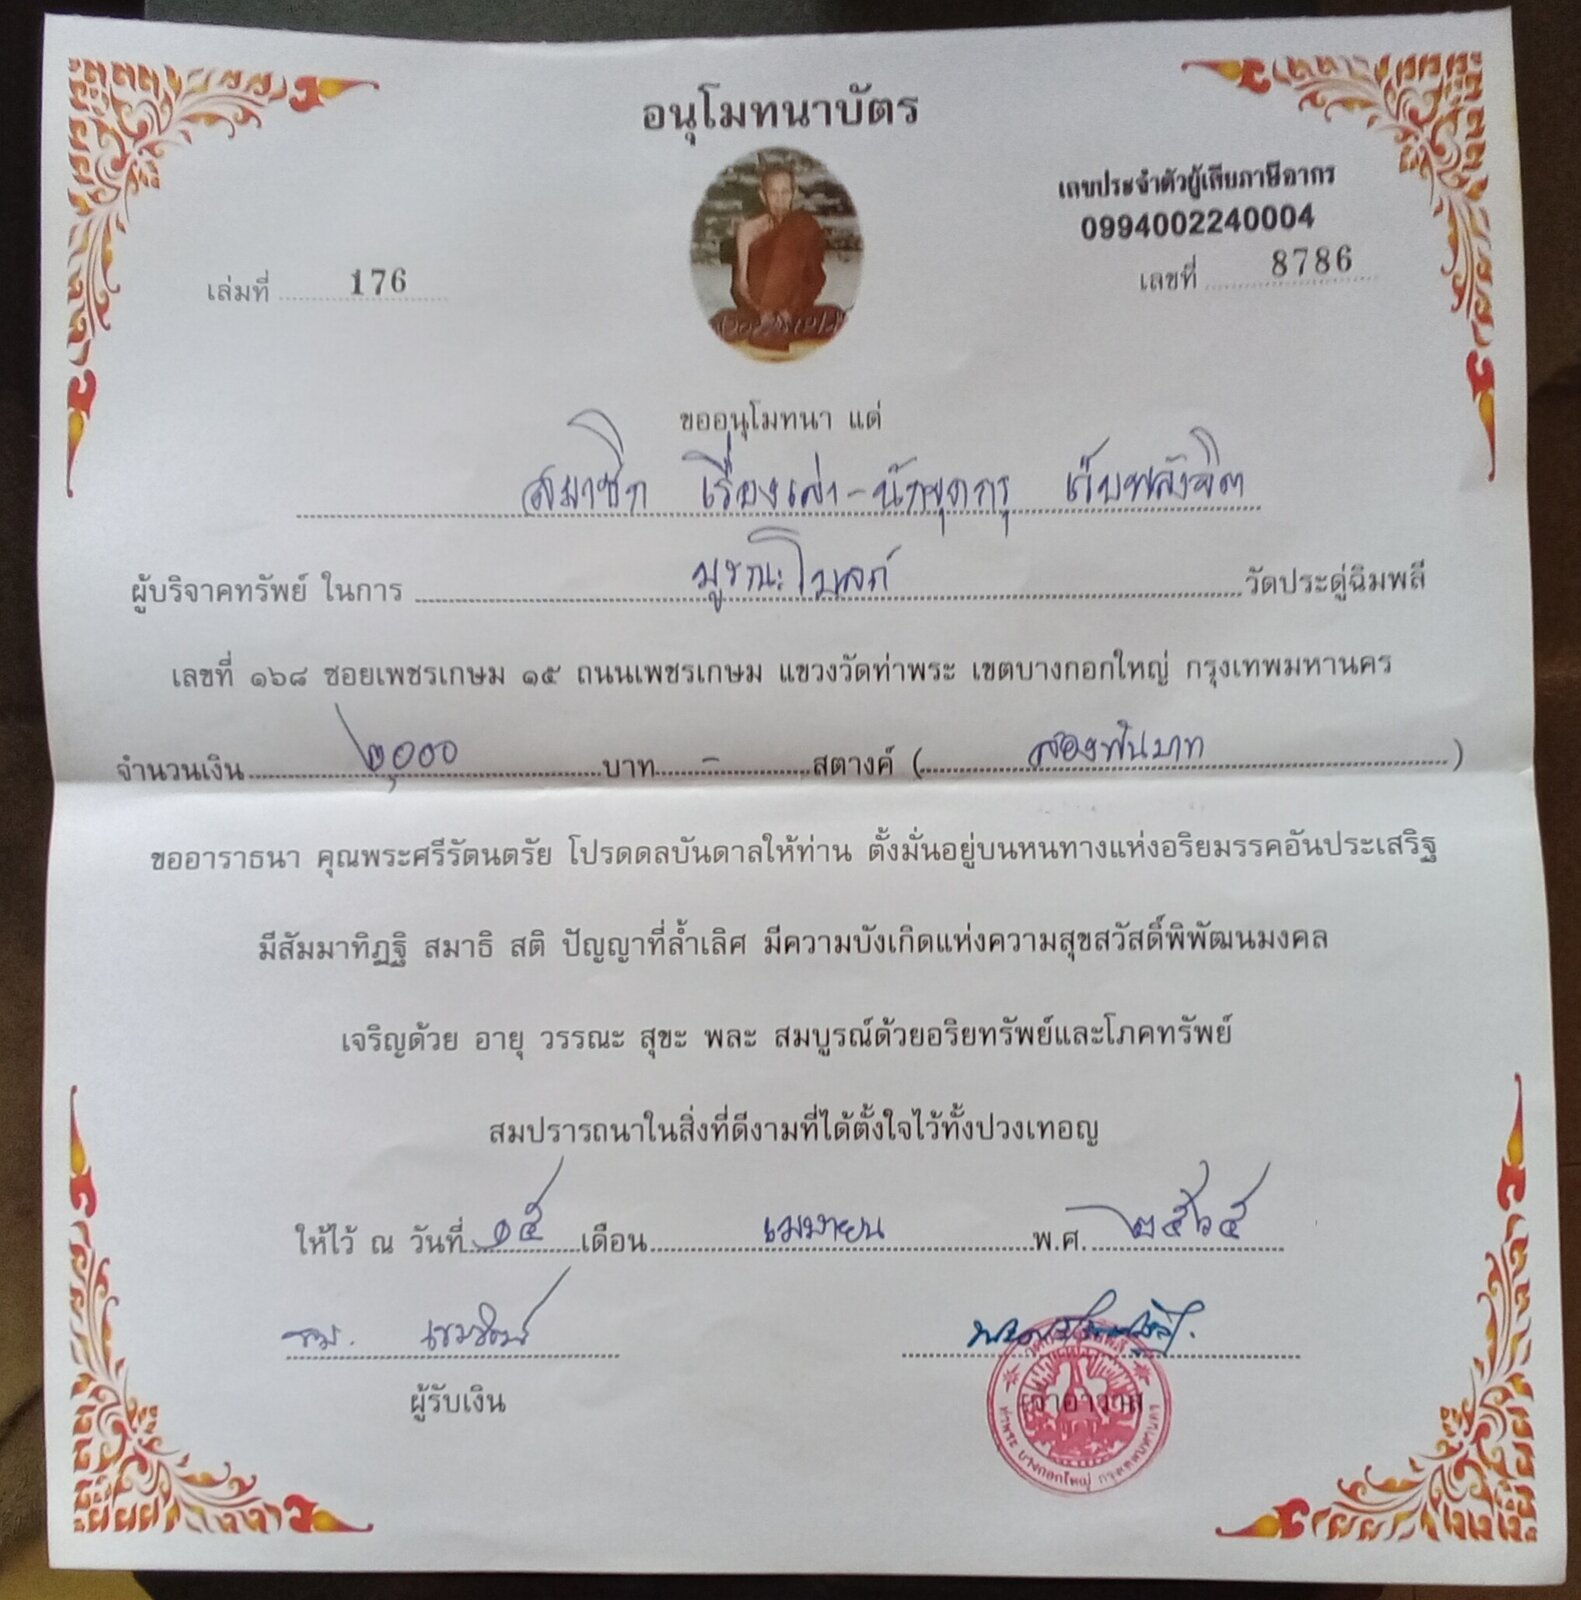 อนุโมทนาบัตร
เลขประจำตัวผู้เสียภาษีอากร
0994002240004
เล่มที่ 176
เลขที่ 8786
ขออนุโมทนา แด่
สมาชิก เรื่องเล่า-นักขุดกรุ เว็บพลังจิต
ผู้บริจาคทรัพย์ ในการ บูรณะโบสถ์ วัดประดู่ฉิมพลี
เลขที่ ๑๖๘ ซอยเพชรเกษม ๑๕ ถนนเพชรเกษม แขวงวัดท่าพระ เขตบางกอกใหญ่ กรุงเทพมหานคร
จำนวนเงิน ๒,๐๐๐ บาท - สตางค์ ( สองพันบาท )
ขออาราธนา คุณพระศรีรัตนตรัย โปรดดลบันดาลให้ท่าน ตั้งมั่นอยู่บนหนทางแห่งอริยมรรคอันประเสริฐ
มีสัมมาทิฏฐิ สมาธิ สติ ปัญญาที่ล้ำเลิศ มีความบังเกิดแห่งความสุขสวัสดิ์พิพัฒนมงคล
เจริญด้วย อายุ วรรณะ สุขะ พละ สมบูรณ์ด้วยอริยทรัพย์และโภคทรัพย์
สมปรารถนาในสิ่งที่ดีงามที่ได้ตั้งใจไว้ทั้งปวงเทอญ
ให้ไว้ ณ วันที่ ๑๕ เดือน เมษายน พ.ศ. ๒๕๖๕
ผู้รับเงิน
เจ้าอาวาส
ท่าพระ บางกอกใหญ่ กรุงเทพมหานคร